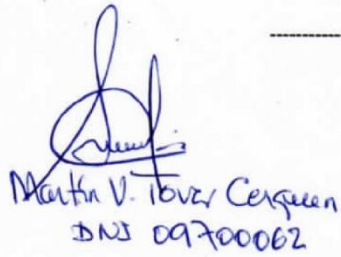 Martin V. Tovar Cerqueen
DNI 09700062